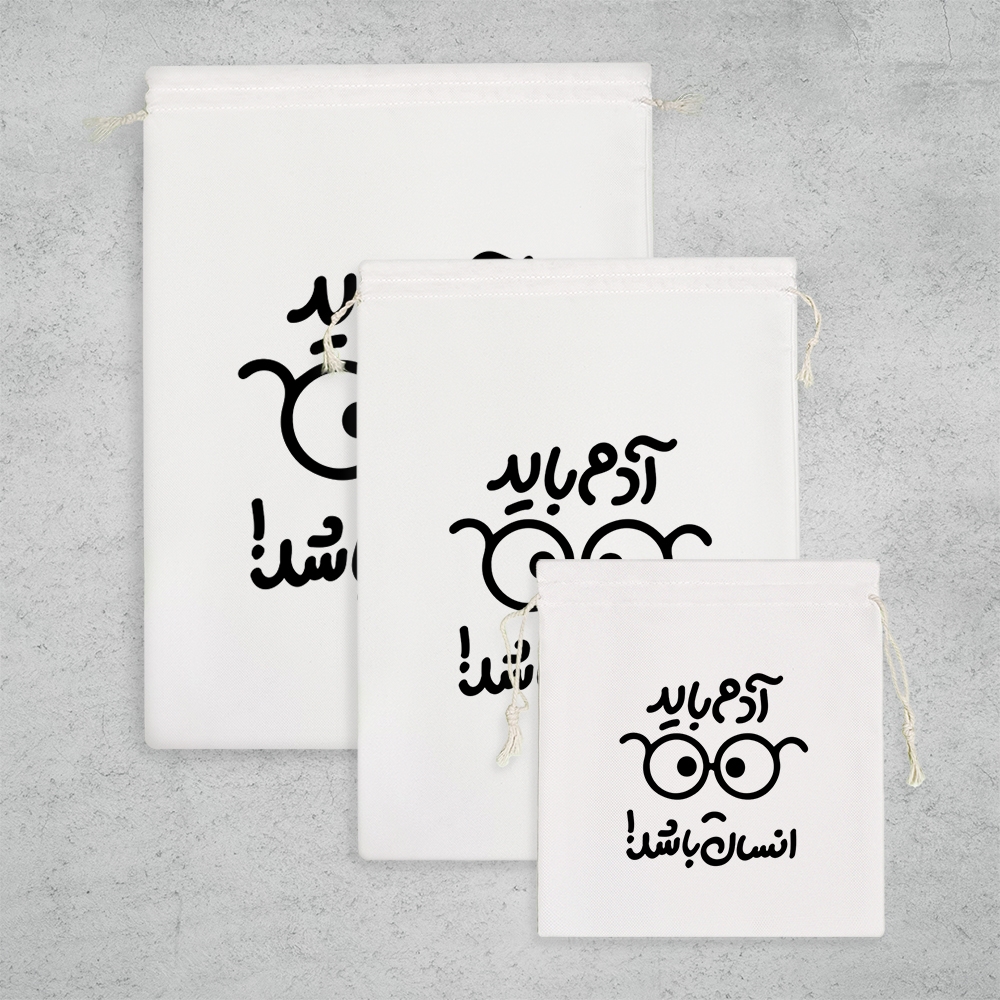 باید
باشد!
آدم باید
باشد!
آدم باید
انسان باشد!